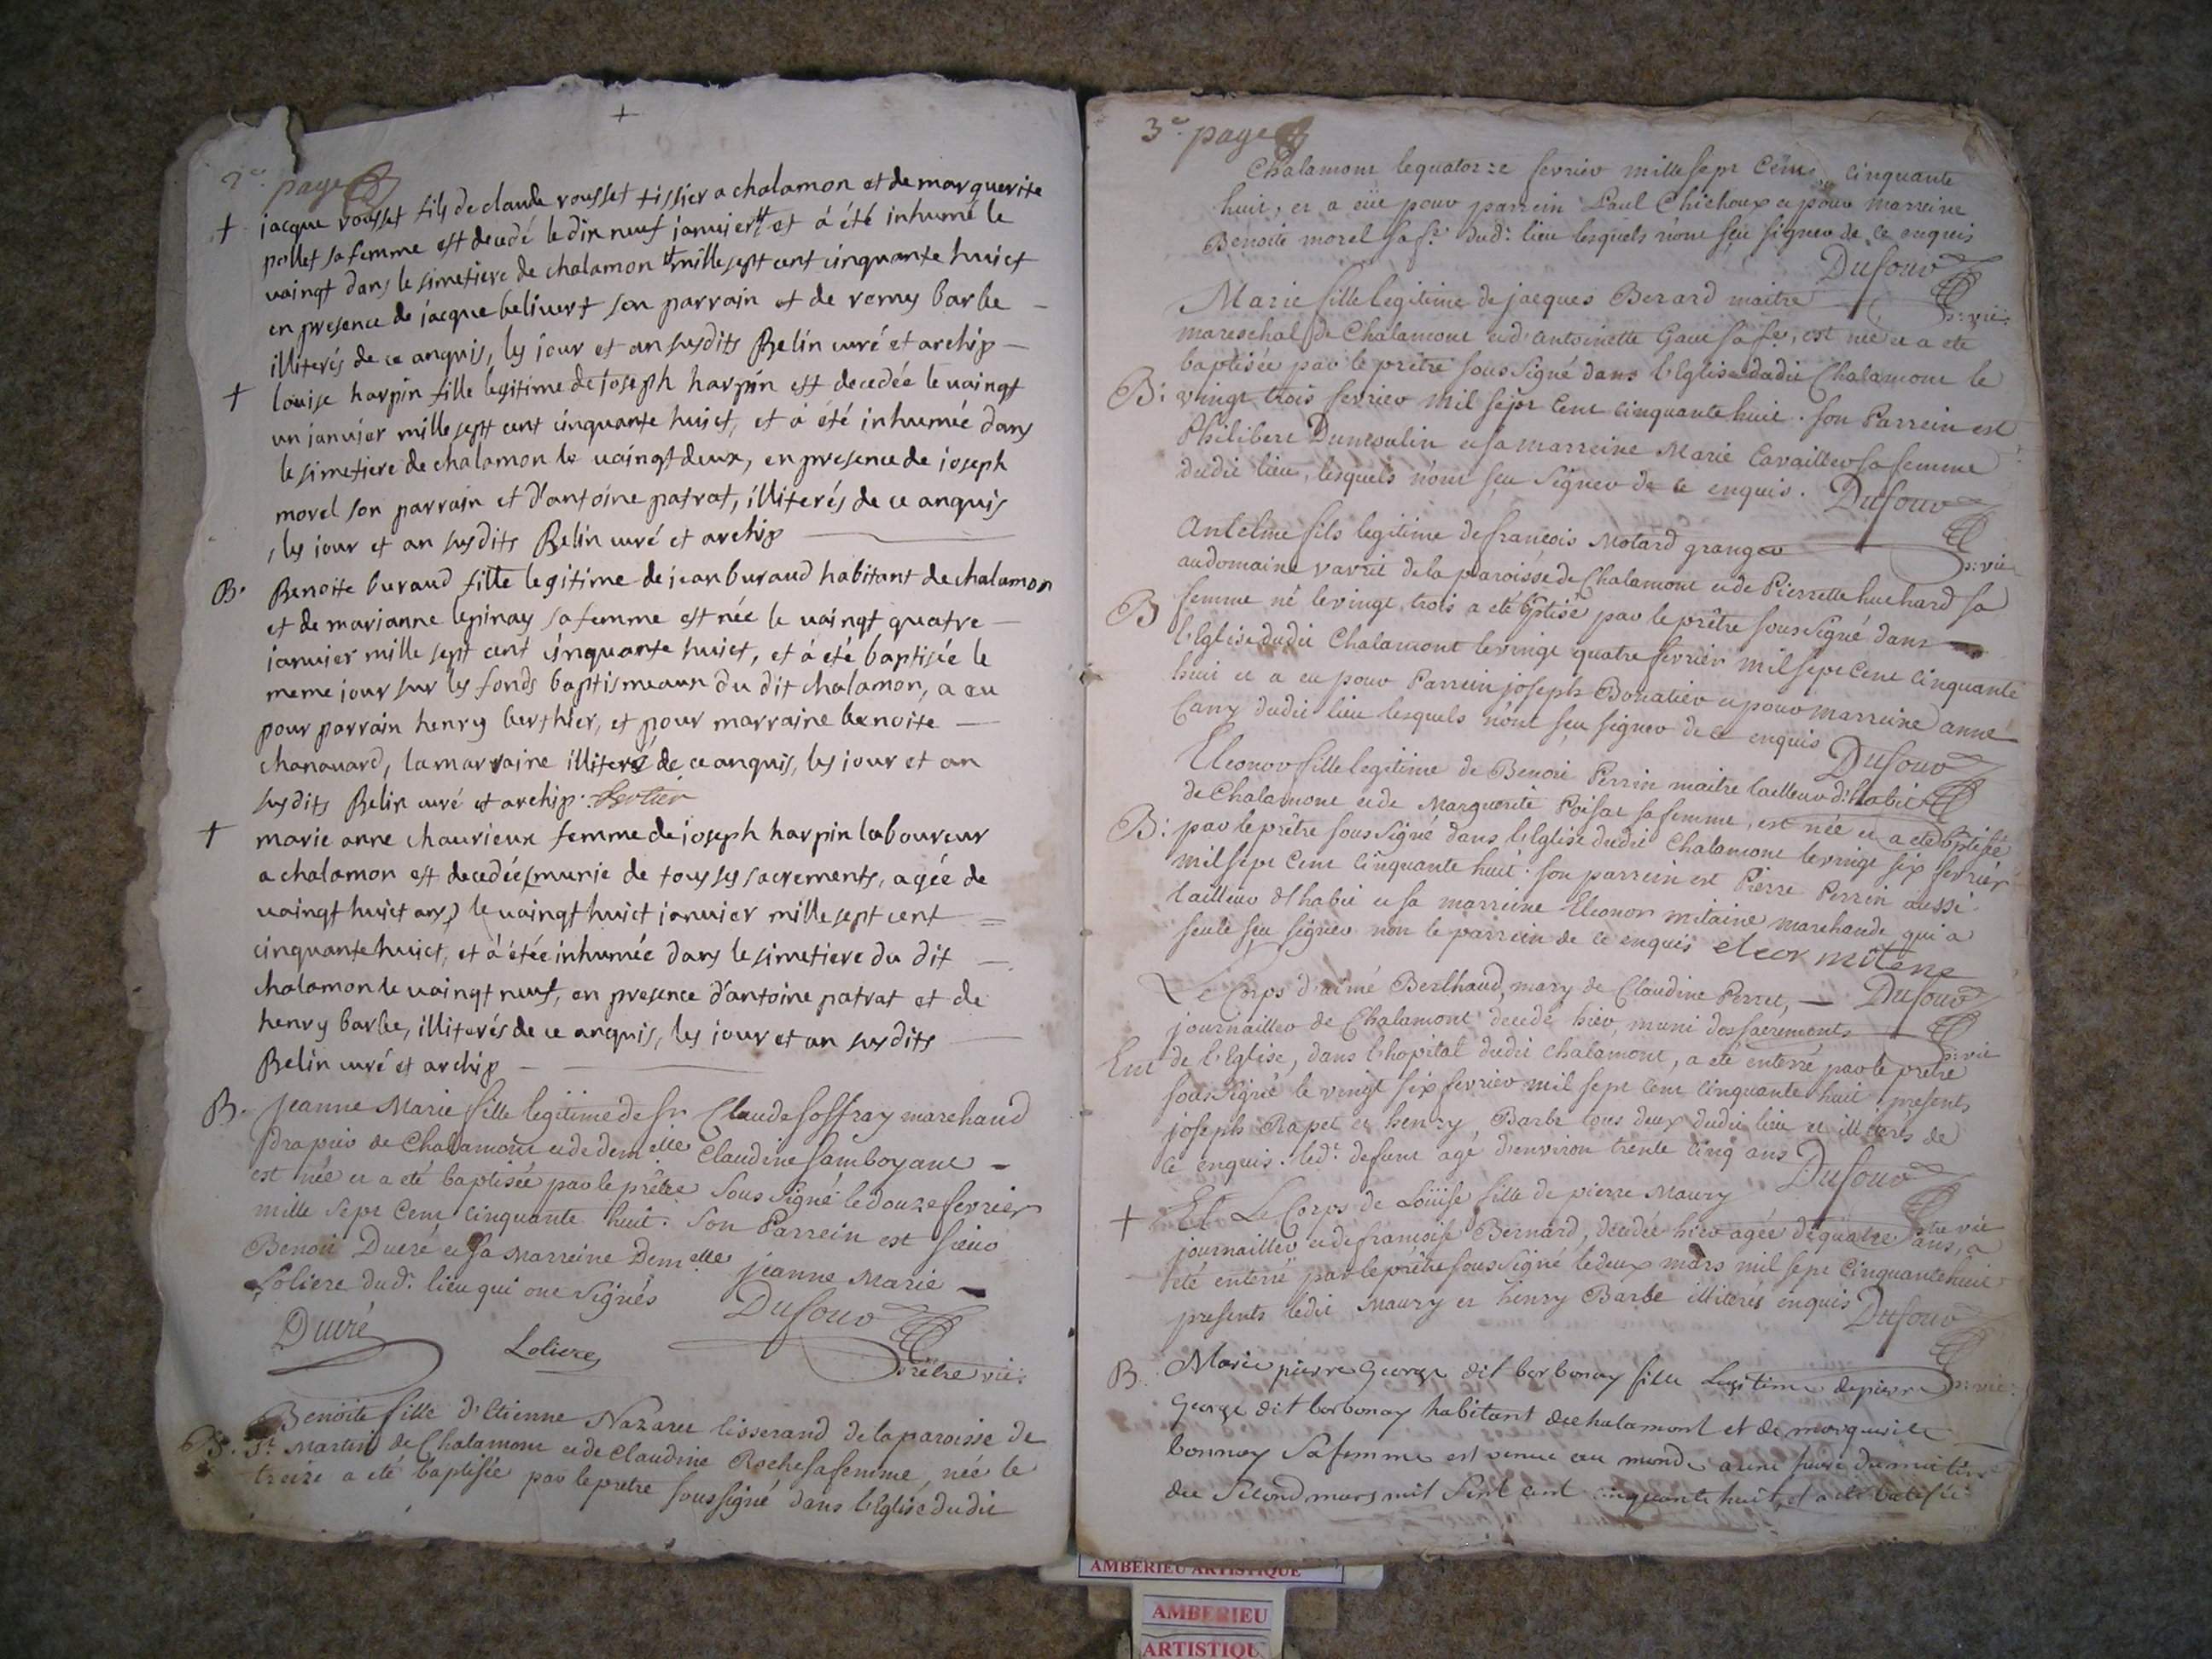 +
2e page
† jacque rousset fils de claude rousset tissier a chalamon et de marguerite
pollet sa femme est decedé le dix neuf janvier et á été inhumé le
vaingt dans le simetiere de chalamon mille sept cent cinquante huict
en presence de jácque belivert son parrain et de remy barbe
illiterés de ce anquis, les jour et an susdits Belin curé et archip
† louise harpin fille legitime de joseph harpin est decedée le vaingt
un janvier mille sept cent cinquante huict, et á été inhumée dans
le simetiere de chalamon le vaingt deux, en presence de joseph
morel son parrain et d'antoine patrat, illiterés de ce anquis
, les jour et an susdits Belin curé et archip
B. Benoite buraud fille legitime de jean buraud habitant de chalamon
et de marianne lepinay sa femme est née le vaingt quatre
janvier mille sept cent cinquante huict, et á été baptisée le
meme jour sur les fonds baptismeaux du dit chalamon, a eu
pour parrain henry berthier, et pour marraine benoite
chanavard, la marraine illiteré de ce anquis, les jour et an
susdits Belin curé et archip. Bertier
† marie anne chaurieux femme de joseph harpin laboureur
a chalamon est decedée (munie de tous ses sacrements, agée de
vaingt huict ans) le vaingt huict janvier mille sept cent
cinquante huict, et á étée inhumée dans le simetiere du dit
chalamon le vaingt neuf, en presence d'antoine patrat et de
henry barbe, illiterés de ce anquis, les jour et an susdits
Belin curé et archip
B. Jeanne Marie fille legitime de sr. Claude soffray marchand
drapier de Chalamont et de demelle Claudine samboyant
est née et a eté baptisée par le prêtre sous signé le douze fevrier
mille sept cent cinquante huit. Son Parrein est sieur
Benoit Ducré et sa Marreine Demelle jeanne Marie
Loliere dud. lieu qui ont signés Dufour
Ducré Loliere Prêtre vic.
B. Benoite fille d'Etienne Nazaret tisserand de la paroisse de
St. Martin de Chalamont et de Claudine Roche sa femme, née le
treize a eté baptisée par le prêtre sous signé dans l'Eglise dudit
3e page
Chalamont le quatorze fevrier mille sept Cents cinquante
huit, et a eüe pour parrein Paul Chichoux et pour marreine
Benoite morel sa fe. dud. lieu lesquels n'ont sçu signer de ce enquis
Dufour
Marie fille legitime de jacques Berard maitre
Pr. vic.
mareschal de Chalamont et d'antoinette Gaut sa fe, est née et a eté
baptisée par le prêtre sous signé dans l'Eglise dudit Chalamont le
B: vingt trois fevrier mil sept cent cinquante huit. son Parrein est
Philibert Dumoulin et sa marreine Marie Cavailler sa femme
dudit lieu, lesquels n'ont sçu signer de ce enquis. Dufour
Antelme fils legitime de francois Motard granger
Pr. vic
au domaine vavrit de la paroisse de Chalamont et de Pierrette huchard sa
B femme né le vingt trois a eté bptisé par le prêtre sous signé dans
l'Eglise dudit Chalamont le vingt quatre fevrier mil sept cent cinquante
huit et a eu pour Parrein joseph Donatier et pour marreine anne
Cany dudit lieu lesquels n'ont sçu signer de ce enquis Dufour
Eleonor fille legitime de Benoit Perrin maitre tailleur d'habit
de Chalamont et de Marguerite Poisat sa femme, est née et a eté bptisée
B: par le prêtre sous signé dans l'Eglise dudit Chalamont le vingt six fevrier
mil sept cent cinquante huit. son parrein est Pierre Perrin aussi
tailleur d'habit et sa marreine Eleonor mitaine marchande qui a
seule sçu signer non le parrein de ce enquis eleor mitene
Le Corps d'aimé Berlhaud, mary de Claudine Perret, Dufour
journailler de Chalamont decedé hier, muni des sacrements
Pr. vic
Ent de l'Eglise, dans l'hopital dudit chalamont, a eté enterré par le prêtre
sous signé le vingt six fevrier mil sept cent cinquante huit presents
joseph Rapet et henry Barbe tous deux dudit lieu et illiterés de
ce enquis. led. defunt agé d'environ trente cinq ans Dufour
† Et Le Corps de Loüise fille de pierre Maury
Ptre vic
journailler et de francoise Bernard, decedée hier agée de quatre ans, a
eté enterré par le prêtre sous signé le deux mars mil sept cinquante huit
presents ledit Maury et henry Barbe illiterés enquis Dufour
Pr. vic.
B. Marie pierre George dit borbonay fille Legitime de pierre
George dit borbonay habitant de chalamont et de marguerite
bonnay sa femme est venue au monde a une heure du matin
du second mars mil sept cent cinquante huit, et a eté batisée
AMBERIEU ARTISTIQUE
AMBERIEU
ARTISTIQU